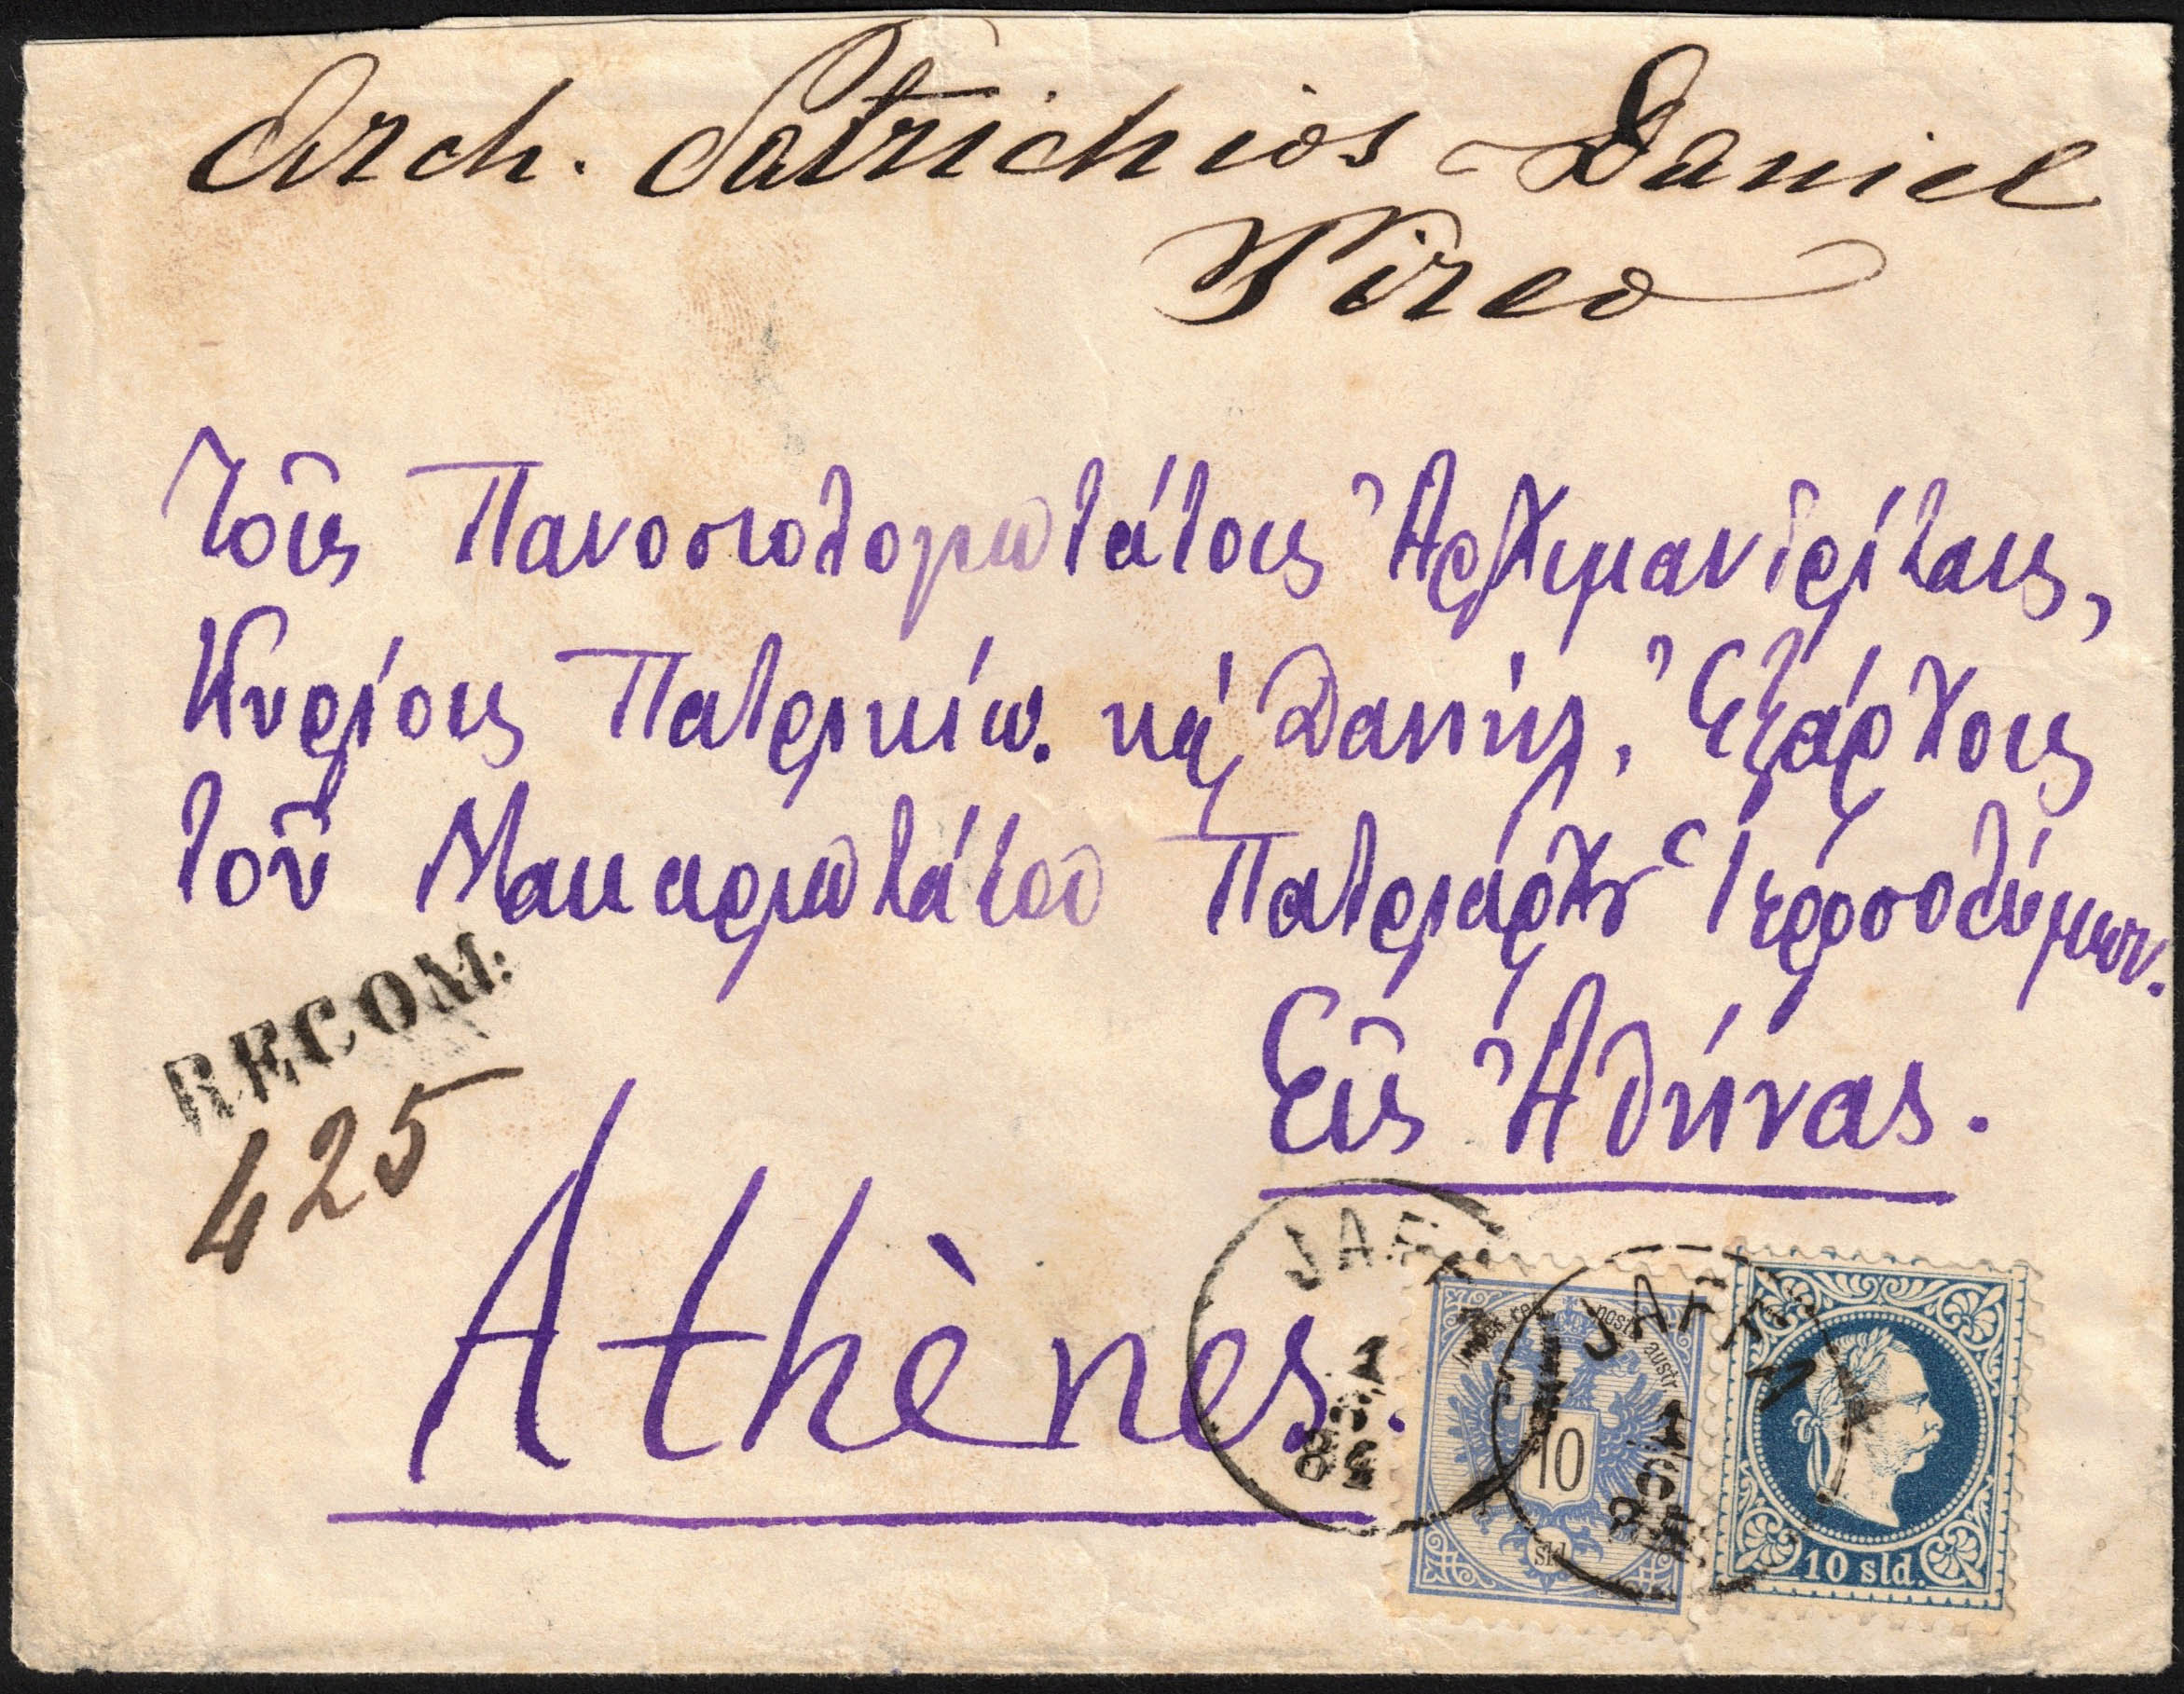 Arch. Patrichios Daniel
Pireo
Τοῖς Πανοσιολογιωτάτοις Ἀρχιμανδρίταις,
Κυρίοις Πατρικίω. κὴ Δανιήλ, Ἐξάρχοις
τοῦ Μακαριωτάτου Πατριάρχου Ἱεροσολύμων.
Εἰς Ἀθήνας.
RECOM:
425
Athènes.
JAFFA
JAFFA
10
sld
10 sld.